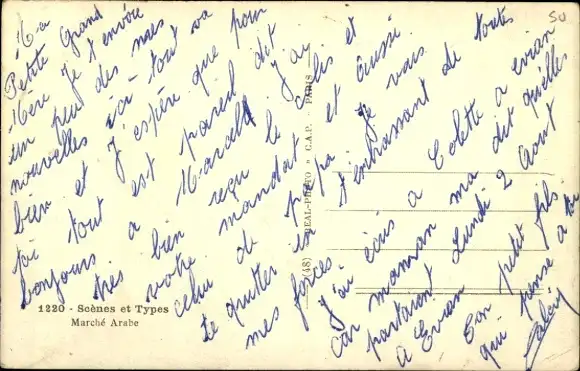 Ma
Petite Grand
Mère je t'envoie
un peu des mes
nouvelles ici tout va
bien et j'espère que pour
toi tout est pareil dit
bonjours a Marcelle j'ai
très bien reçu le colis et
votre mandat et aussi
celui de papa je vais
te quitter en t'embrassant de toutes
mes forces
J'ai écris a Colette a evian
car maman ma dit qu'elles
partaient Lundi 2 Aout
a Evian Ton petit fils
qui pense a toi
1220 - Scènes et Types
Marché Arabe
(48) REAL-PHOTO » C.A.P. - PARIS
50